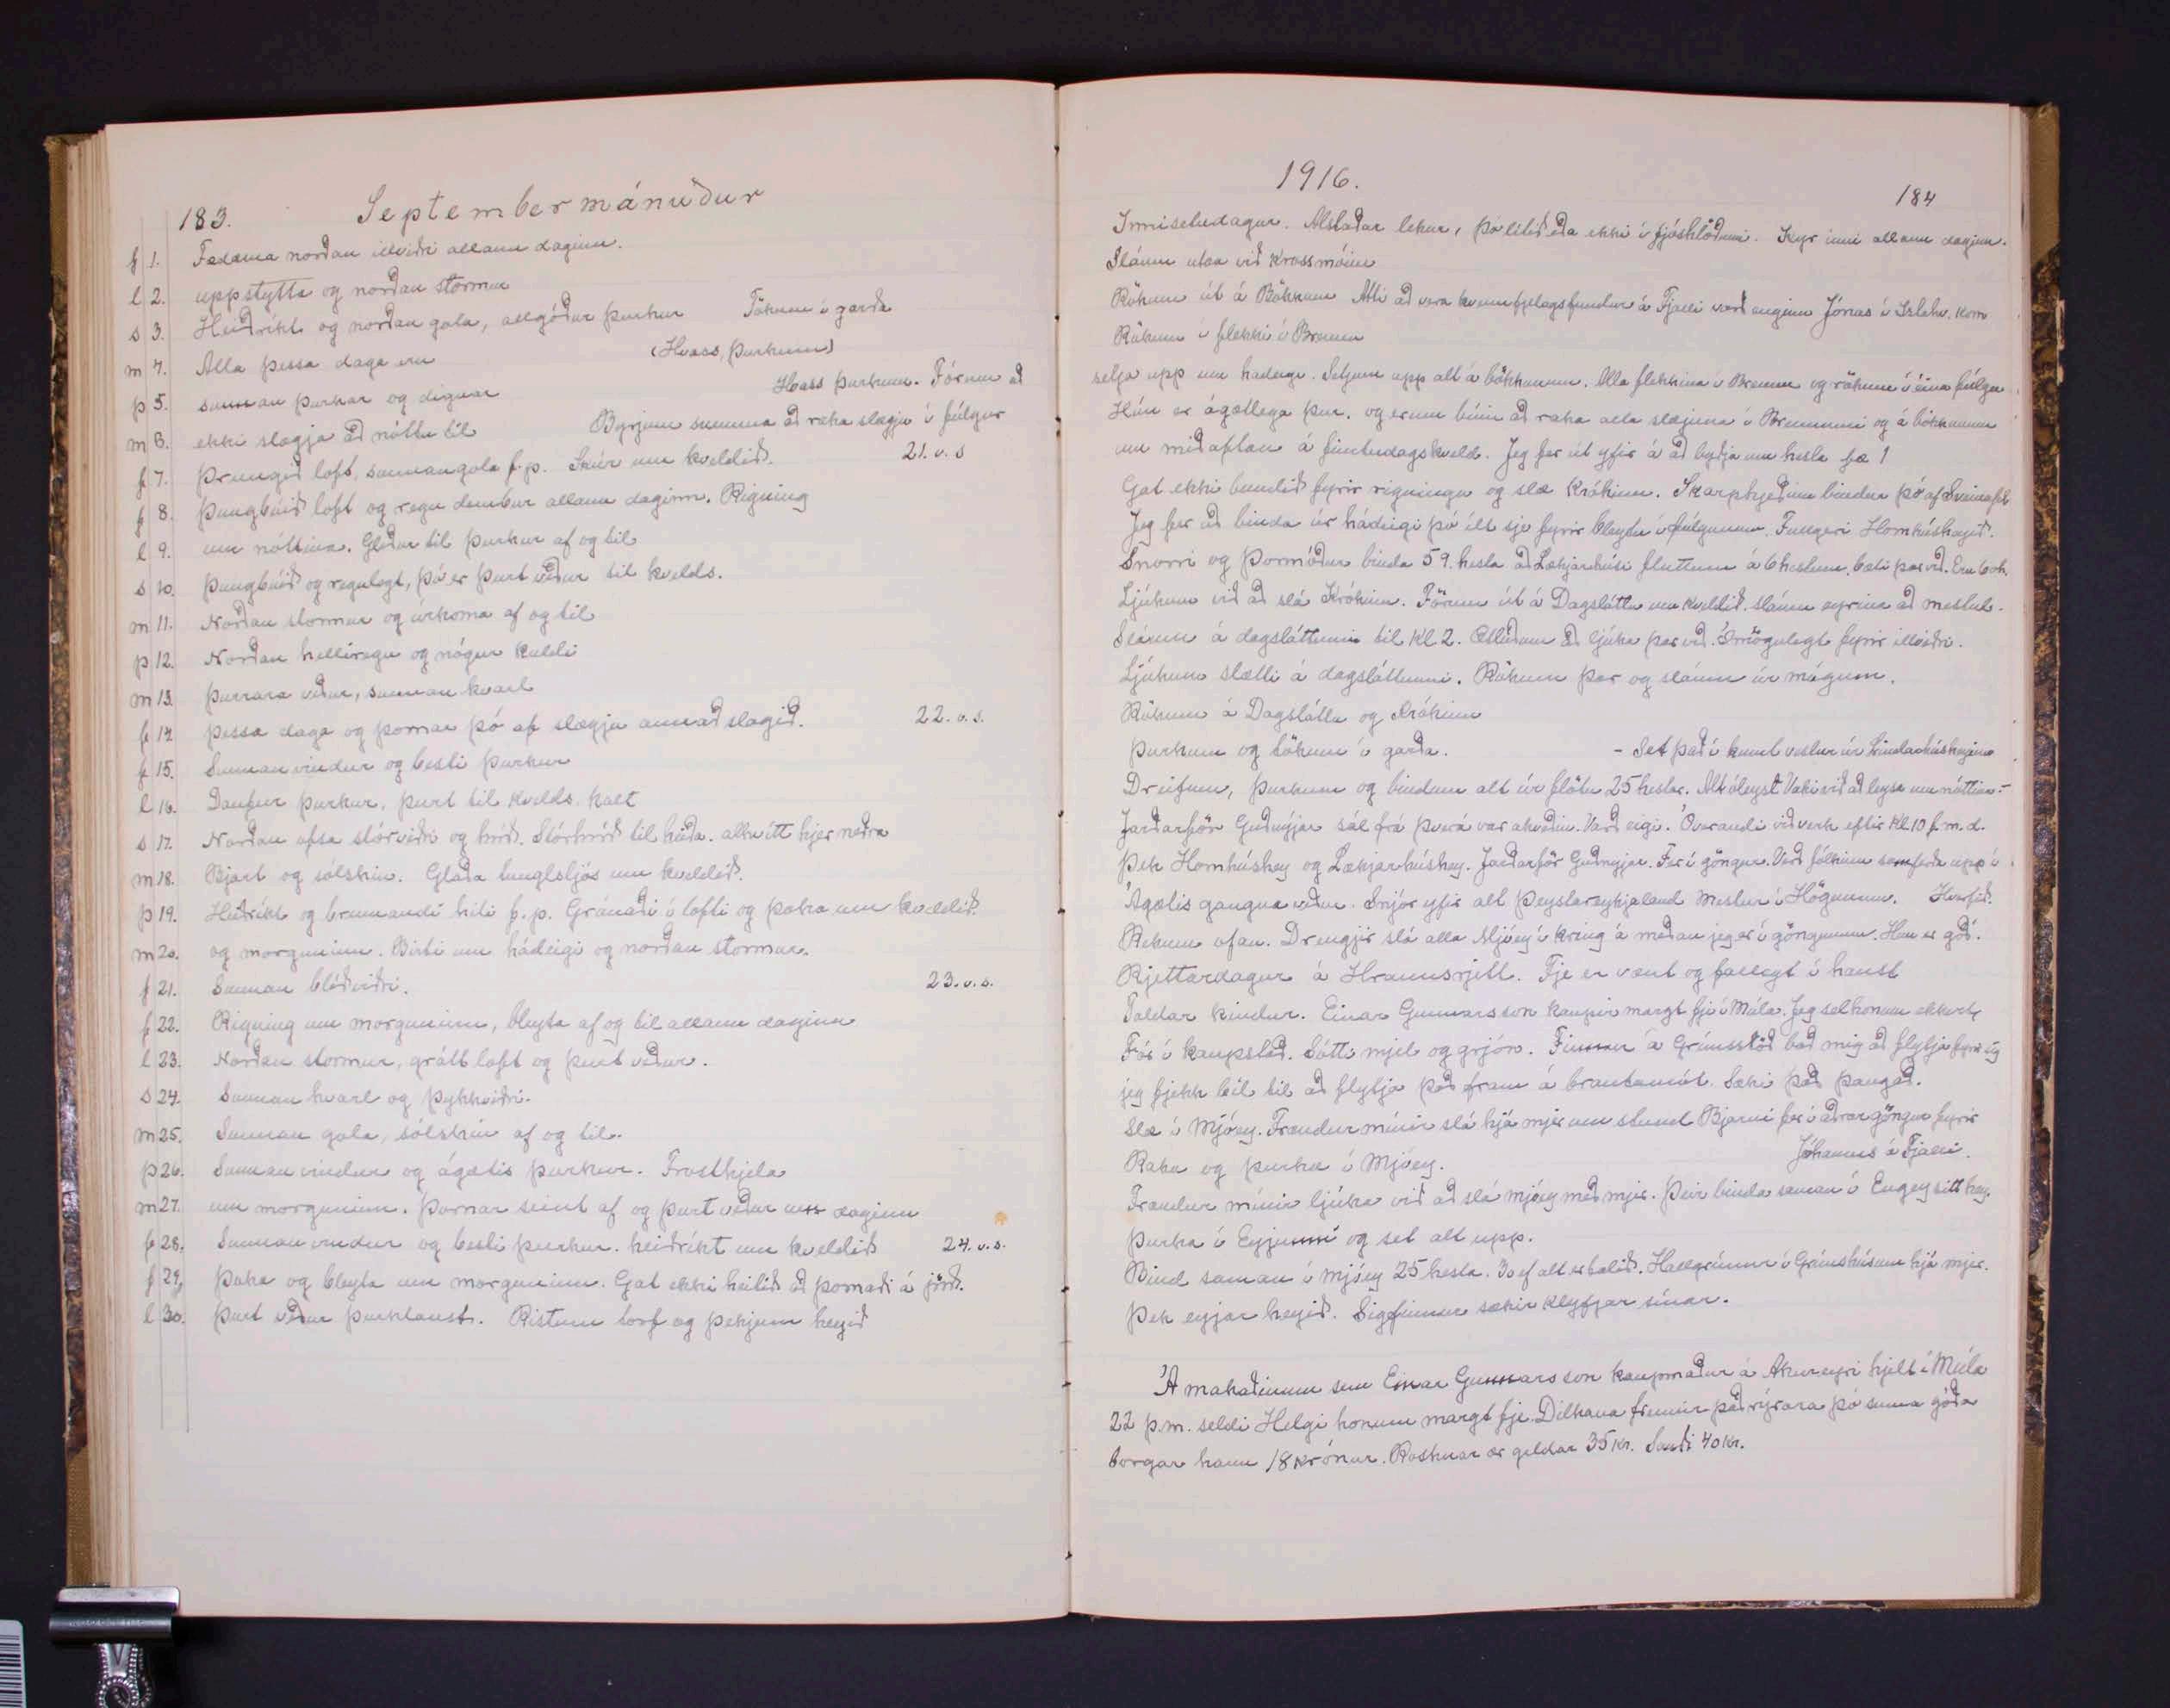 183. Septembermánuður
f 1. Fadæma norðan illviðri allann daginn.
l 2. uppstytta og norðan stormur
s 3. Heiðríkt og norðan gola, allgóður þurkur Tökum í garða
m 4. Alla þessa daga eru (Hvass, þurkum)
þ 5. sunnan þurkar og dignar Hvass þurkum. Förum að
m 6. ekki slægja að nóttu til Byrjum summa að raka slægju í fúlgur
f 7. Þrungið loft, sunnangola f.p. Skúr um kveldið. 21. v. s
f 8. Þungbúið loft og regn dembur allann daginn. Rigning
l 9. um nóttina. Glaðar til þurkur af og til
s 10. Þungbúið og regnlegt, þó er þurt veður til kvelds.
m 11. Norðan stormur og úrkoma af og til
þ 12. Norðan helliregn og nógur kuldi
m 13. Þurrara veður, sunnan kvael
f 14. þessa daga og þornar þó af slægju annað slagið. 22. v. s.
f 15. Sunnan vindur og besti þurkur
l 16. Daufur þurkur, þurt til kvelds. kalt
s 17. Norðan ofsa stórviðri og hríð. Stórhríð til heiða. alhvítt hjer neðra
m 18. Bjart og sólskin. Glaða tunglsljós um kveldið.
þ 19. Heiðríkt og brennandi hiti f.p. Gránaði í lofti og þoka um kveldið
m 20. og morguninn. Birti um hádeigi og norðan stormur.
f 21. Sunnan blíðviðri. 23. v. s.
f 22. Rigning um morguninn, bleyta af og til allann daginn
l 23. Norðan stormur, grátt loft og þurt veður.
s 24. Sunnan kvael og þykkviðri.
m 25. Sunnan gola, sólskin af og til.
þ 26. Sunnan vindur og ágætis þurkur. Frosthjela
m 27. um morguninn. Þornar seint af og þurt veður um daginn
f 28. Sunnan vindur og besti þurkur. heiðríkt um kveldið 24. v. s.
f 29. Þoka og bleyta um morguninn. Gat ekki heitið að þornaði á jörð.
l 30. Þurt veður þurklaust. Ristum torf og þekjum heyið
1916.
184
Innisetudagur. Alstaðar lekur, þó lítið eða ekki í fjóshlöðunni. Kýr inni allann daginn.
Sláum utan við Krossmóinn
Rökum út á Bökkum Átti að vera kvennfjelagsfundur á Fjalli varð enginn Jónas í Szlahv. kom
Rökum í flekki í Brunnu
setja upp um hadegi. Setjum upp alt á bökkunum. Alla flekkina í Brunnu og rökum í eina fúlgu
Hún er ágætlega þur. og erum búin að raka alla slægjuna í Brunnunni og á bökkunum
um miðaftan á fimtudagskveld. Jeg fer út yfir á að byðja um hesta fæ 1
Gat ekki bundið fyrir rigningu og slæ Krókinn. Skarphjeðinn bindur þó af
Jeg fer að binda úr hádeigi þó ilt sje fyrir bleytu í fúlgunum. Tungeri Hornhúsheyið.
Snorri og Þormóður binda 59. hesta að Lækjarhúsi fluttum á 6 hestum. bæti þar við. Eru 60 h.
Ljúkum við að slá Krókinn. Förum út á Dagsláttu um kveldið. sláum eyrina að mestu.
Sláum á dagsláttunni til kl 2. Ætluðum að ljúka þar við. Ómögulegt fyrir illviðri.
Ljúkum slætti á dagsláttunni. Rökum þar og sláum úr mógum.
Rökum á Dagsláttu og Krókinn
Þurkum og tökum í garða. - Set það í kuml vestur úr Lindarhúsheyinu
Drífum, þurkum og bindum alt úr flötu 25 hestar. Alt óleyst Vaki við að leysa um nóttina.-
Jarðarför Guðnýjar sál frá Þverá var ákveðin. Varð eigi. Óverandi við verk eftir kl 10 f.m.d.
Þek Hornhúshey og Lækjarhúshey. Jarðarför Guðnyjar. Fer í göngur. Verð fólkinu samferða upp í
Ágætis gangna veður. Snjór yfir alt Þeystareykjaland Mestur í Högunum. Hverfið.
Rekum ofan. Drengjir slá alla Mjóey í kring á meðan jeg er í göngunum. Hun er góð.
Rjettardagur á Hraunsrjett. Fje er vænt og fallegt í haust
Taldar kindur. Einar Gunnarsson kaupir margt fje í Múla. Jeg sel honum ekkert
Fór í kaupstað. Sótti mjel og grjón. Finnur á Grímsstöð bað mig að flytja fyrir sig
jeg fjekk bíl til að flytja það fram á brautamót. Sæki það þangað.
Slæ í Mjóey. Frændur mínir slá hjá mjer um stund Bjarni fer í aðrar göngur fyrir
Raka og þurka í Mjóey. Jóhannes á Fjalli.
Frændur mínir ljúka við að slá mjóey með mjer. Þeir binda saman í Engey sitt hey.
Þurka í Eyjunni og set alt upp.
Bind saman í Mjóey 25 hesta. 30 ef alt er talið. Hallgrímur í Grímshúsum hjá mjer.
Þek eyjar heyið. Sigfinnur sækir klyfjar sínar.
Á markaðinum sem Einar Gunnarsson kaupmaður á Akureyri hjelt í Múla
22 þ.m. seldi Helgi honum margt fje. Dilkana fremur það rýrara þó suma góða
borgar hann 18 krónur. Rosknar ær geldar 35 kr. Sauði 40 kr.